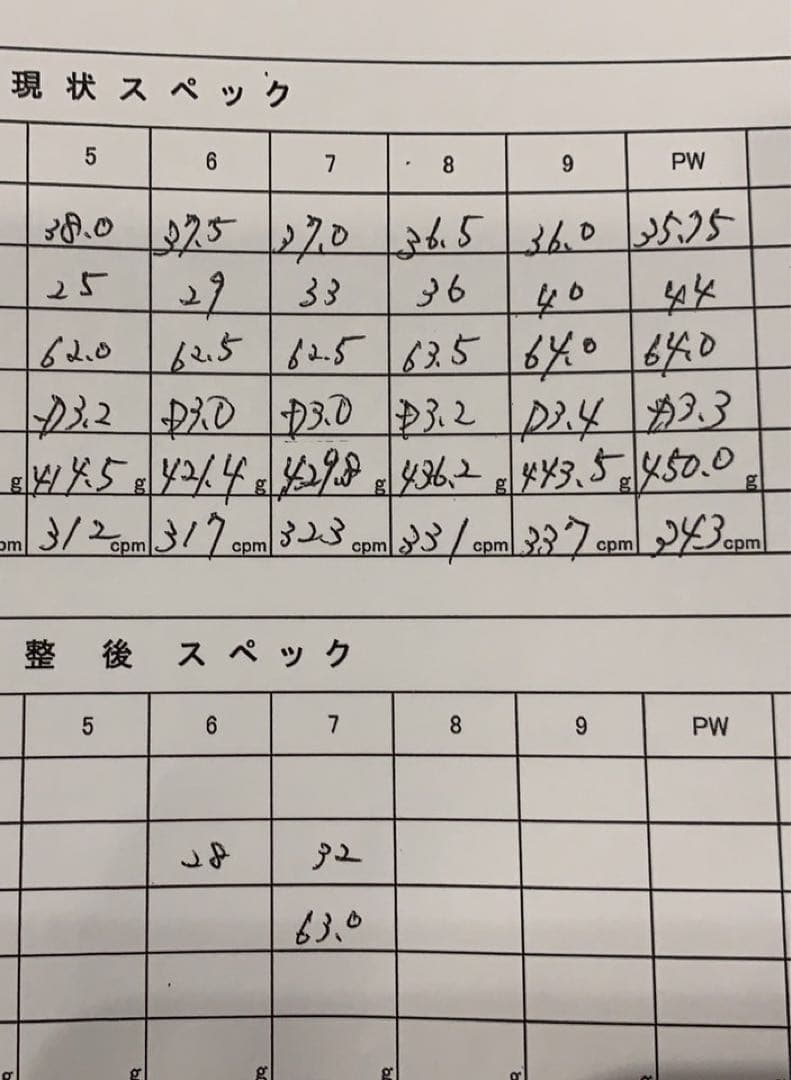 現状スペック
5 6 7 8 9 PW
38.0 37.5 37.0 36.5 36.0 35.75
25 29 33 36 40 44
62.0 62.5 62.5 63.5 64.0 64.0
D3.2 D3.0 D3.0 D3.2 D3.4 D3.3
g 414.5 g 421.4 g 429.8 g 436.2 g 443.5 g 450.0 g
pm 312 cpm 317 cpm 323 cpm 331 cpm 337 cpm 343 cpm
整後スペック
5 6 7 8 9 PW
28 32
63.0
g g g g g